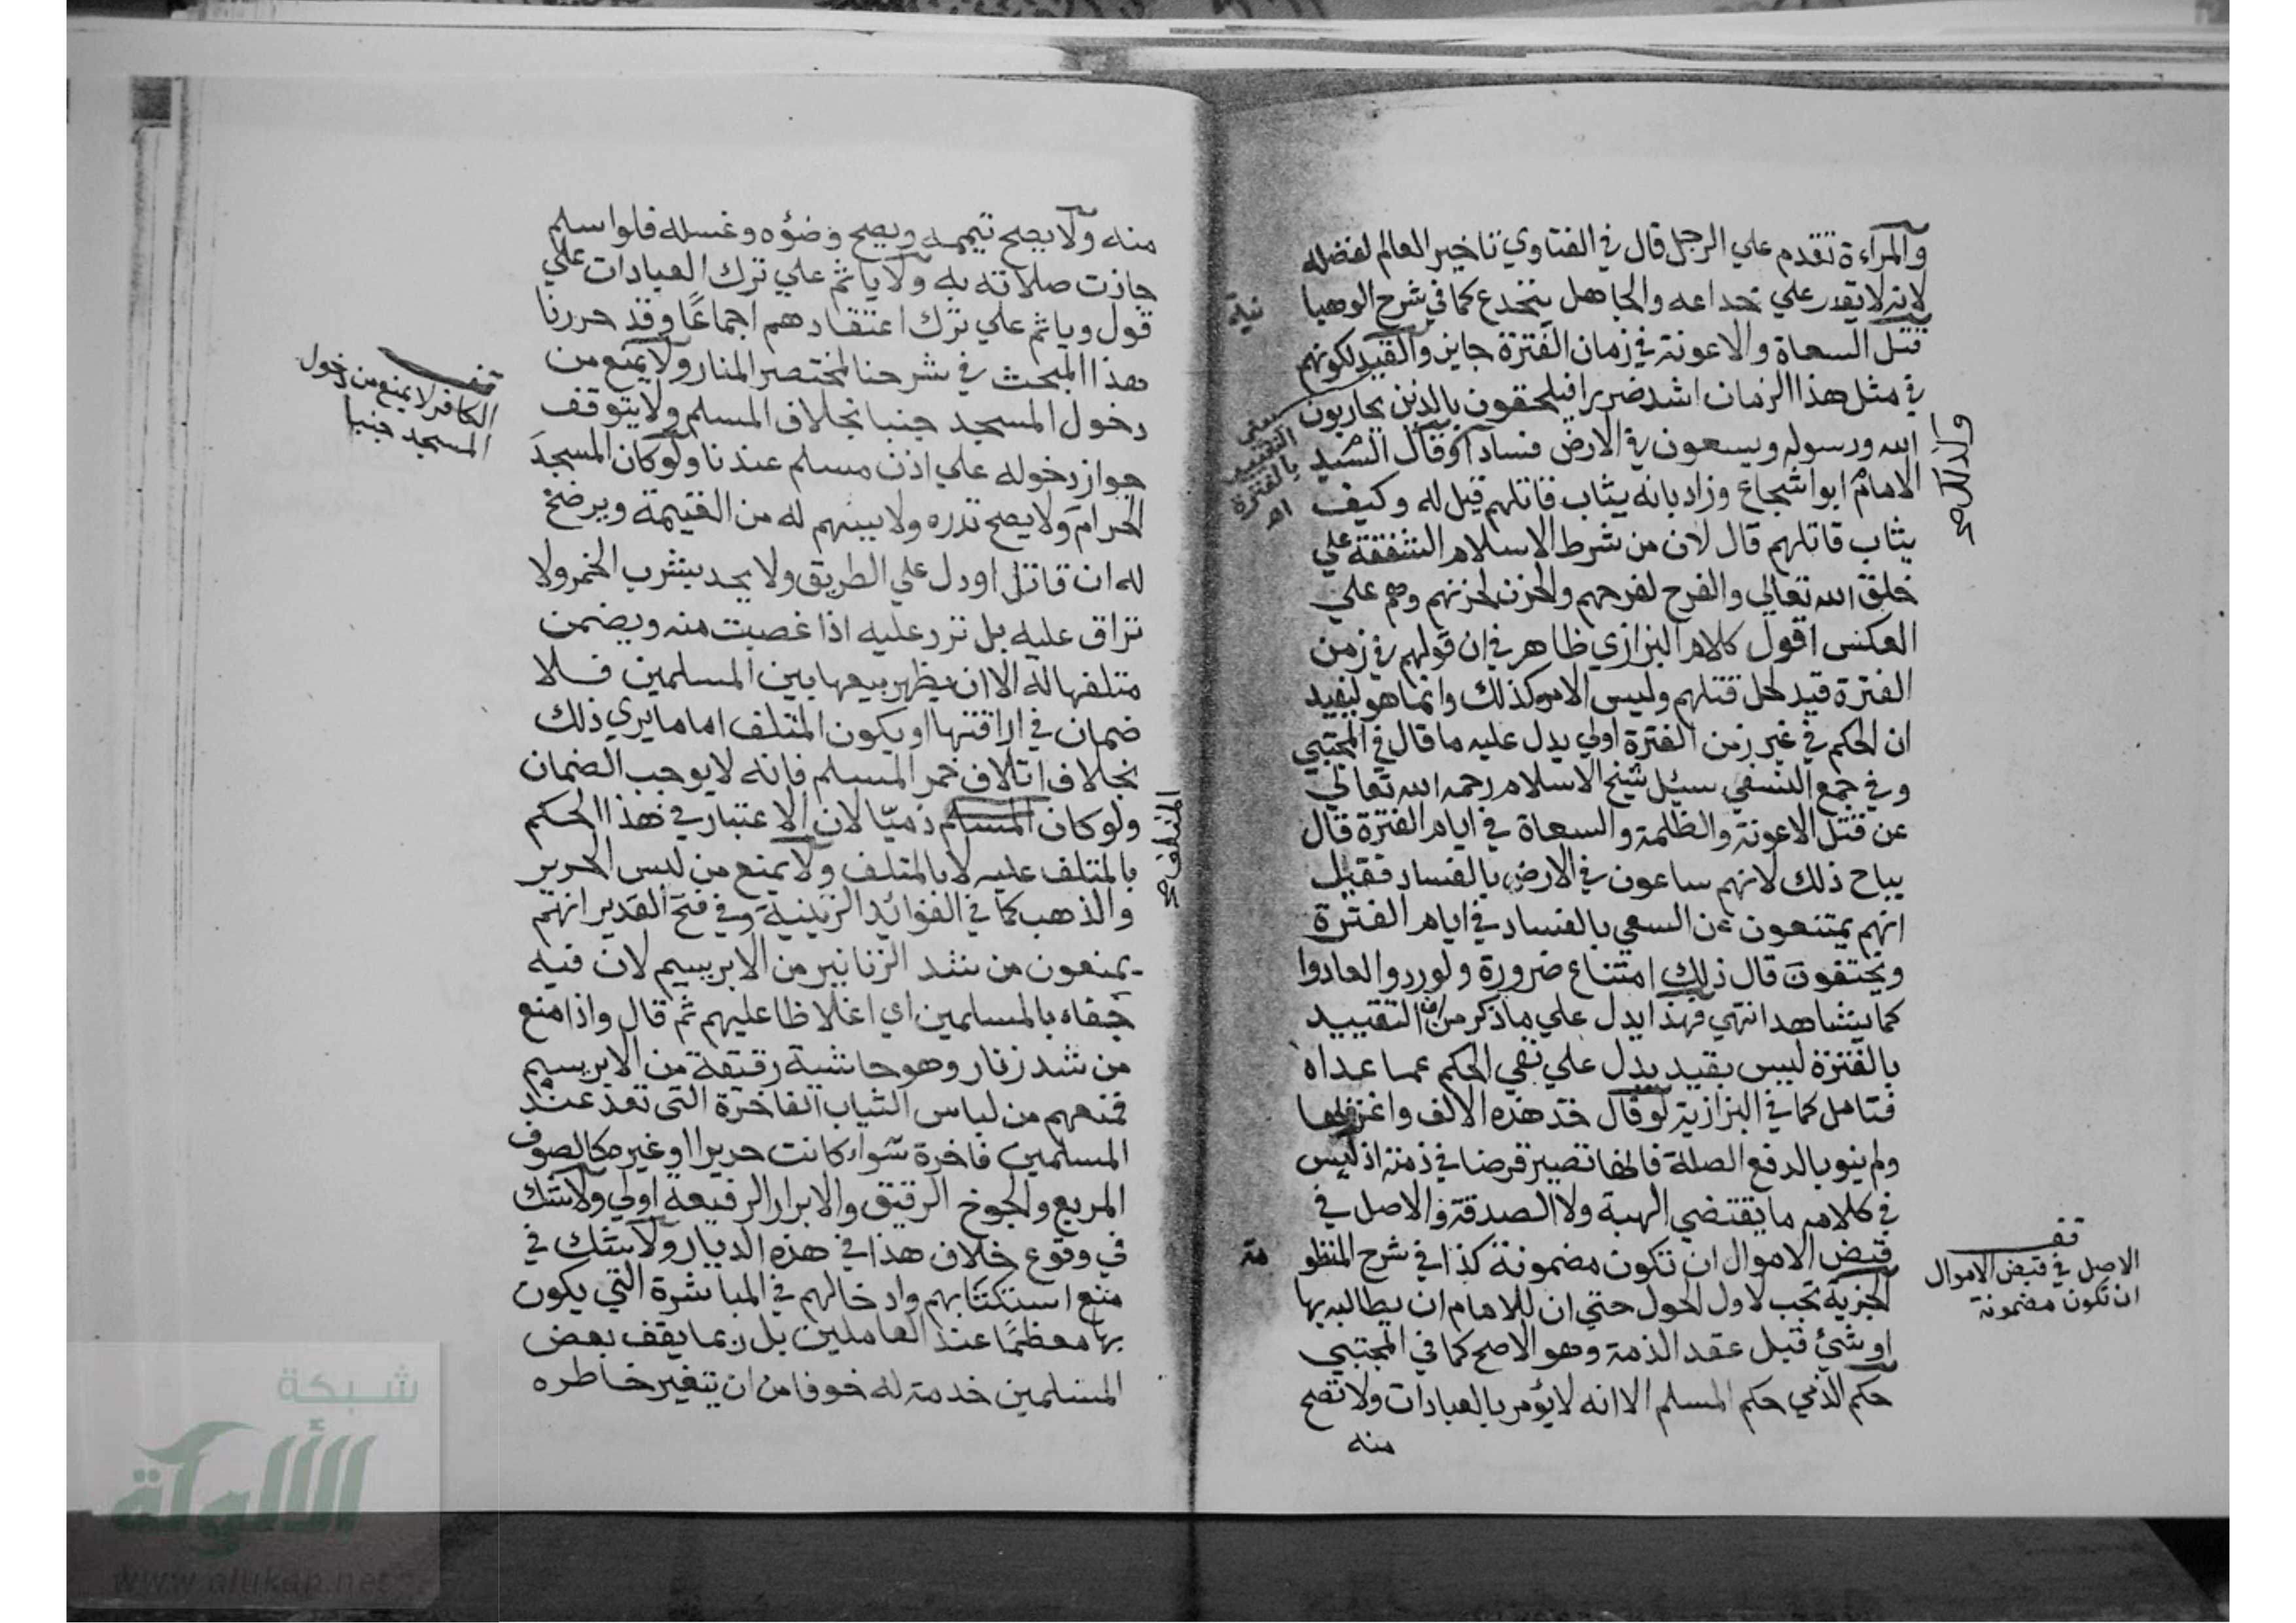 والمرأءة تقدم علي الرجل قال في الفتاوي تاخير العالم لفضله
لانه لا يقدر علي خداعه والجاهل ينخدع كما في شرح الوهبا
نية
قتل السعاة والاعونة في زمان الفترة جايز والقيد لكونهم
في مثل هذا الزمان اشد ضررا فيلحقون بالذين يحاربون
الله ورسوله ويسعون في الارض فسادا وقال السيد
الامام ابوا شجاع وزاد بانه يثاب قاتلهم قيل له وكيف
يثاب قاتلهم قال لان من شرط الاسلام الشفقة علي
خلق الله تعالي والفرح لفرحهم والحزن لحزنهم وهم علي
العكس اقول كلام البزازي ظاهر في ان قولهم في زمن
الفترة قيد لحل قتلهم وليس الامر كذلك وانما هو ليفيد
ان الحكم في غير زمن الفترة اولي يدل عليه ما قال في المجتبي
وفي جمع النسفي سيئل شيخ الاسلام رحمه الله تعالي
عن قتل الاعونة والظلمة والسعاة في ايام الفترة قال
يباح ذلك لانهم ساعون في الارض بالفساد فقيل
انهم يمتنعون عن السعي بالفساد في ايام الفترة
ويختفون قال ذلك امتناع ضرورة ولو ردوا لعادوا
كما يشاهد انتهي فهذا يدل علي ما ذكر من ان التقييد
بالفترة ليس بقيد يدل علي نفي الحكم عما عداه
فتامل كما في البزازية لو قال خذ هذه الالف واغز بها
ولم ينو بالدفع الصلة فانها تصير قرضا في ذمته اذ ليس
في كلامه ما يقتضي الهبة ولا الصدقة والاصل في
قبض الاموال ان تكون مضمونة كذا في شرح المنظو
مة
الجزية تجب لاول الحول حتي ان للامام ان يطالبه بها
او شئ قبل عقد الذمة وهو الاصح كما في المجتبي
حكم الذمي حكم المسلم الا انه لا يؤمر بالعبادات ولا تصح
منه
معني
التقييد
بالفترة
اه
قف
الاصل في قبض الاموال
ان تكون مضمونة
منه ولا يصح تيممه ويصح وضؤه وغسله فلوا سلم
جازت صلاته به ولا ياثم علي ترك العبادات علي
قول وياثم علي ترك اعتقادهم اجماعًا وقد حررنا
هذا المبحث في شرحنا لمختصر المنار ولا يمنع من
دخول المسجد جنبا بخلاف المسلم ولا يتوقف
جواز دخوله علي اذن مسلم عندنا ولو كان المسجد
الحرام ولا يصح نذره ولا يسهم له من الغنيمة ويرضخ
له ان قاتل او دل علي الطريق ولا يحد بشرب الخمر ولا
تراق عليه بل ترد عليه اذا غصبت منه ويضمن
متلفها له الا ان يظهر بيعها بين المسلمين فلا
ضمان في اراقتها او يكون المتلف اماما يري ذلك
بخلاف اتلاف خمر المسلم فانه لا يوجب الضمان
ولو كان المسلم ذميّا لان الاعتبار في هذا الحكم
بالمتلف عليه لا بالمتلف ولا يمنع من لبس الحرير
والذهب كما في الفوائد الزينية وفي فتح القدير انهم
يمنعون من شد الزنانير من الابريسيم لان فيه
جفاه بالمسلمين اي اغلاظا عليهم ثم قال واذا منع
من شد زنار وهو حاشية رقيقة من الابريسيم
فمنعهم من لباس الثياب الفاخرة التي تعد عند
المسلمين فاخرة سواء كانت حريرا او غيره كالصوف
المربع والجوخ الرقيق والابرار الرفيعة اولي ولا شك
في وقوع خلاف هذا في هذه الديار ولا شك في
منع استكتابهم وادخالهم في المباشرة التي يكون
بها معظمًا عند العاملين بل ربما يقف بعض
المسلمين خدمة له خوفا من ان يتغير خاطره
المتلف صح
قف
الكافر لا يمنع من دخول
المسجد جنبا
شبكة
الألوكة
www.alukah.net